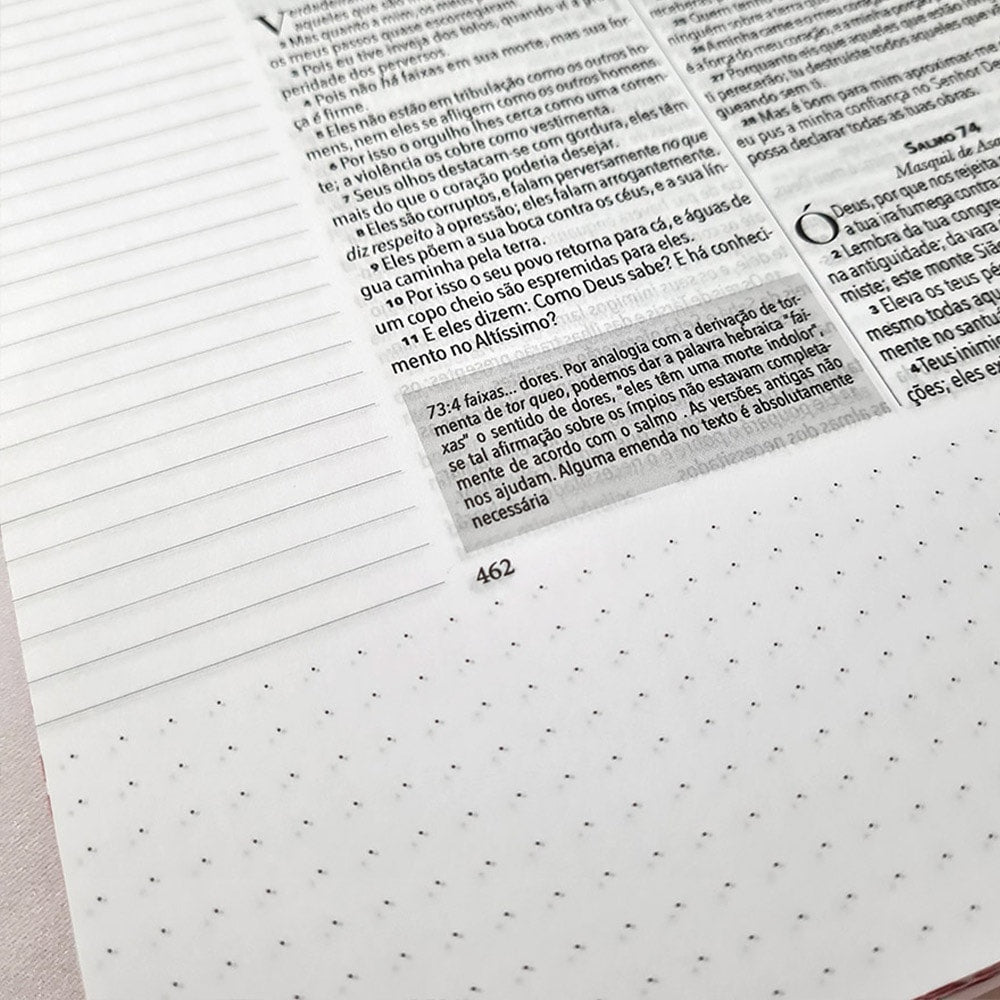 V
erdadeiramente
aqueles que são
2 Mas quanto a mim, os meus
os meus passos quase escorregaram.
3 Pois eu tive inveja dos tolos, quando vi a pros-
peridade dos perversos.
4 Pois não há faixas em sua morte, mas sua for-
ça é firme.
5 Eles não estão em tribulação como os outros ho-
mens, nem eles se afligem como os outros homens.
6 Por isso o orgulho lhes cerca como uma corren-
te; a violência os cobre como vestimenta.
7 Seus olhos destacam-se com gordura, eles têm
mais do que o coração poderia desejar.
8 Eles são corruptos, e falam perversamente no que
diz respeito à opressão; eles falam arrogantemente.
9 Eles põem a sua boca contra os céus, e a sua lín-
gua caminha pela terra.
10 Por isso o seu povo retorna para cá, e águas de
um copo cheio são espremidas para eles.
11 E eles dizem: Como Deus sabe? E há conheci-
mento no Altíssimo?
73:4 faixas... dores. Por analogia com a derivação de tor-
menta de tor queo, podemos dar a palavra hebraica "fai-
xas" o sentido de dores, "eles têm uma morte indolor",
se tal afirmação sobre os ímpios não estavam completa-
mente de acordo com o salmo . As versões antigas não
nos ajudam. Alguma emenda no texto é absolutamente
necessária
462
25 Quem tenho
ninguém sobre a
26 Aminha carne
é a força do meu coração, e a minha porção
27 Porquanto eis que aqueles que estão
perecerão; tu destruíste todos aqueles que
gueando sem ti.
28 Mas é bom para mim aproximar-me
eu pus a minha confiança no Senhor Deus
possa declarar todas as tuas obras.
SALMO 74
Masquil de Asa
Ó Deus, por que nos rejeita
a tua ira fumega contra
2 Lembra da tua congre
na antiguidade; da vara
miste; este monte Sião
3 Eleva os teus pé
mesmo todas aqu
mente no santuá
4 Teus inimi
ções; eles ex